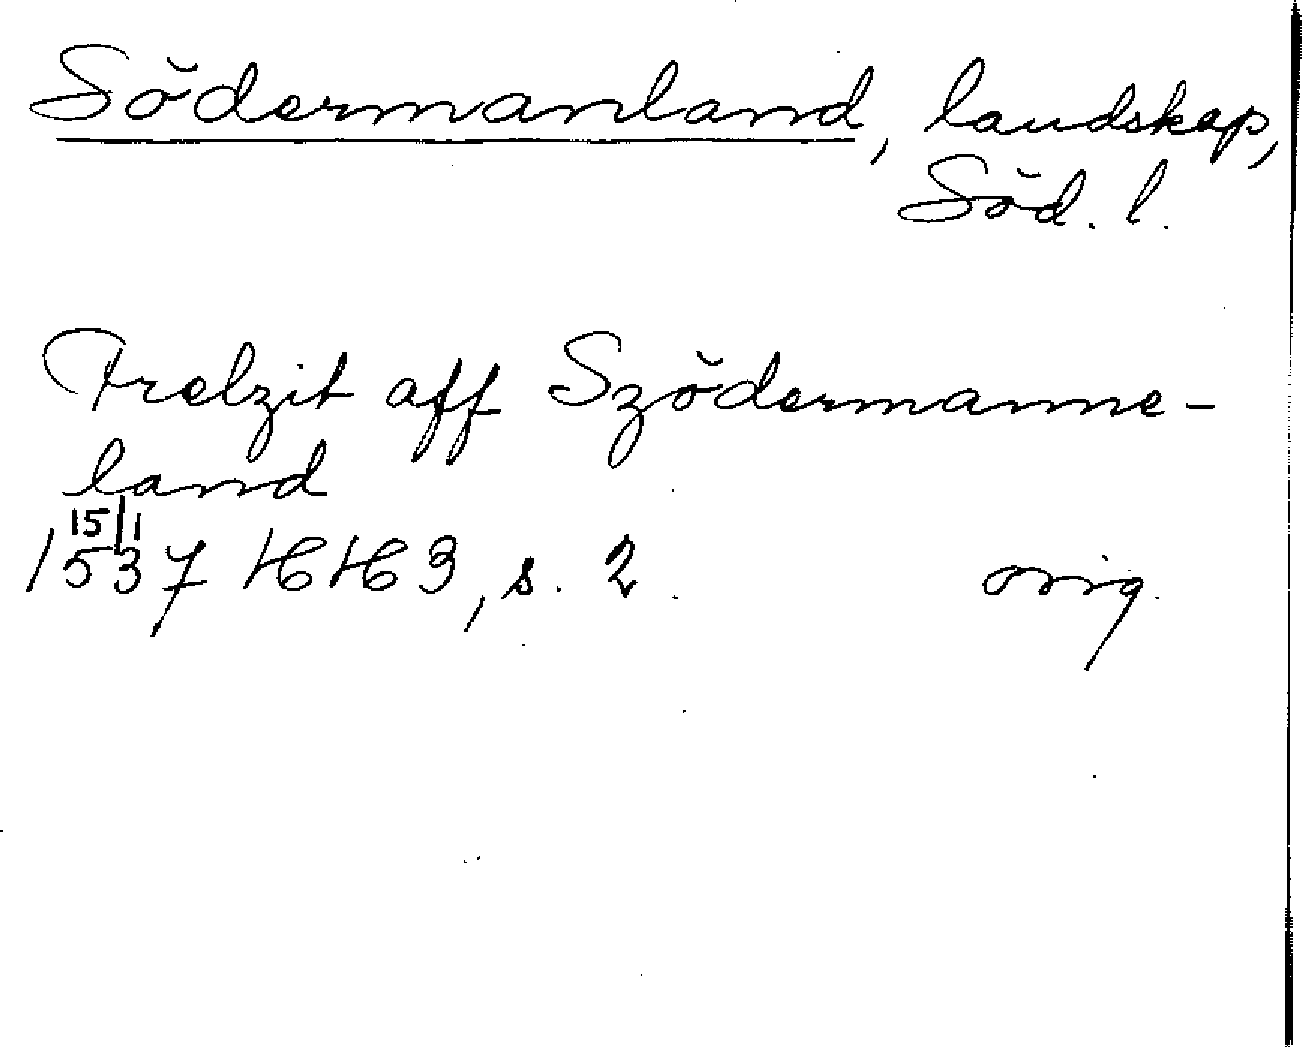 Södermanland, landskap,
Söd. l.
Frelzit aff Szödermanne-
land
15/1
1537 HH 3, s. 2.
orig.